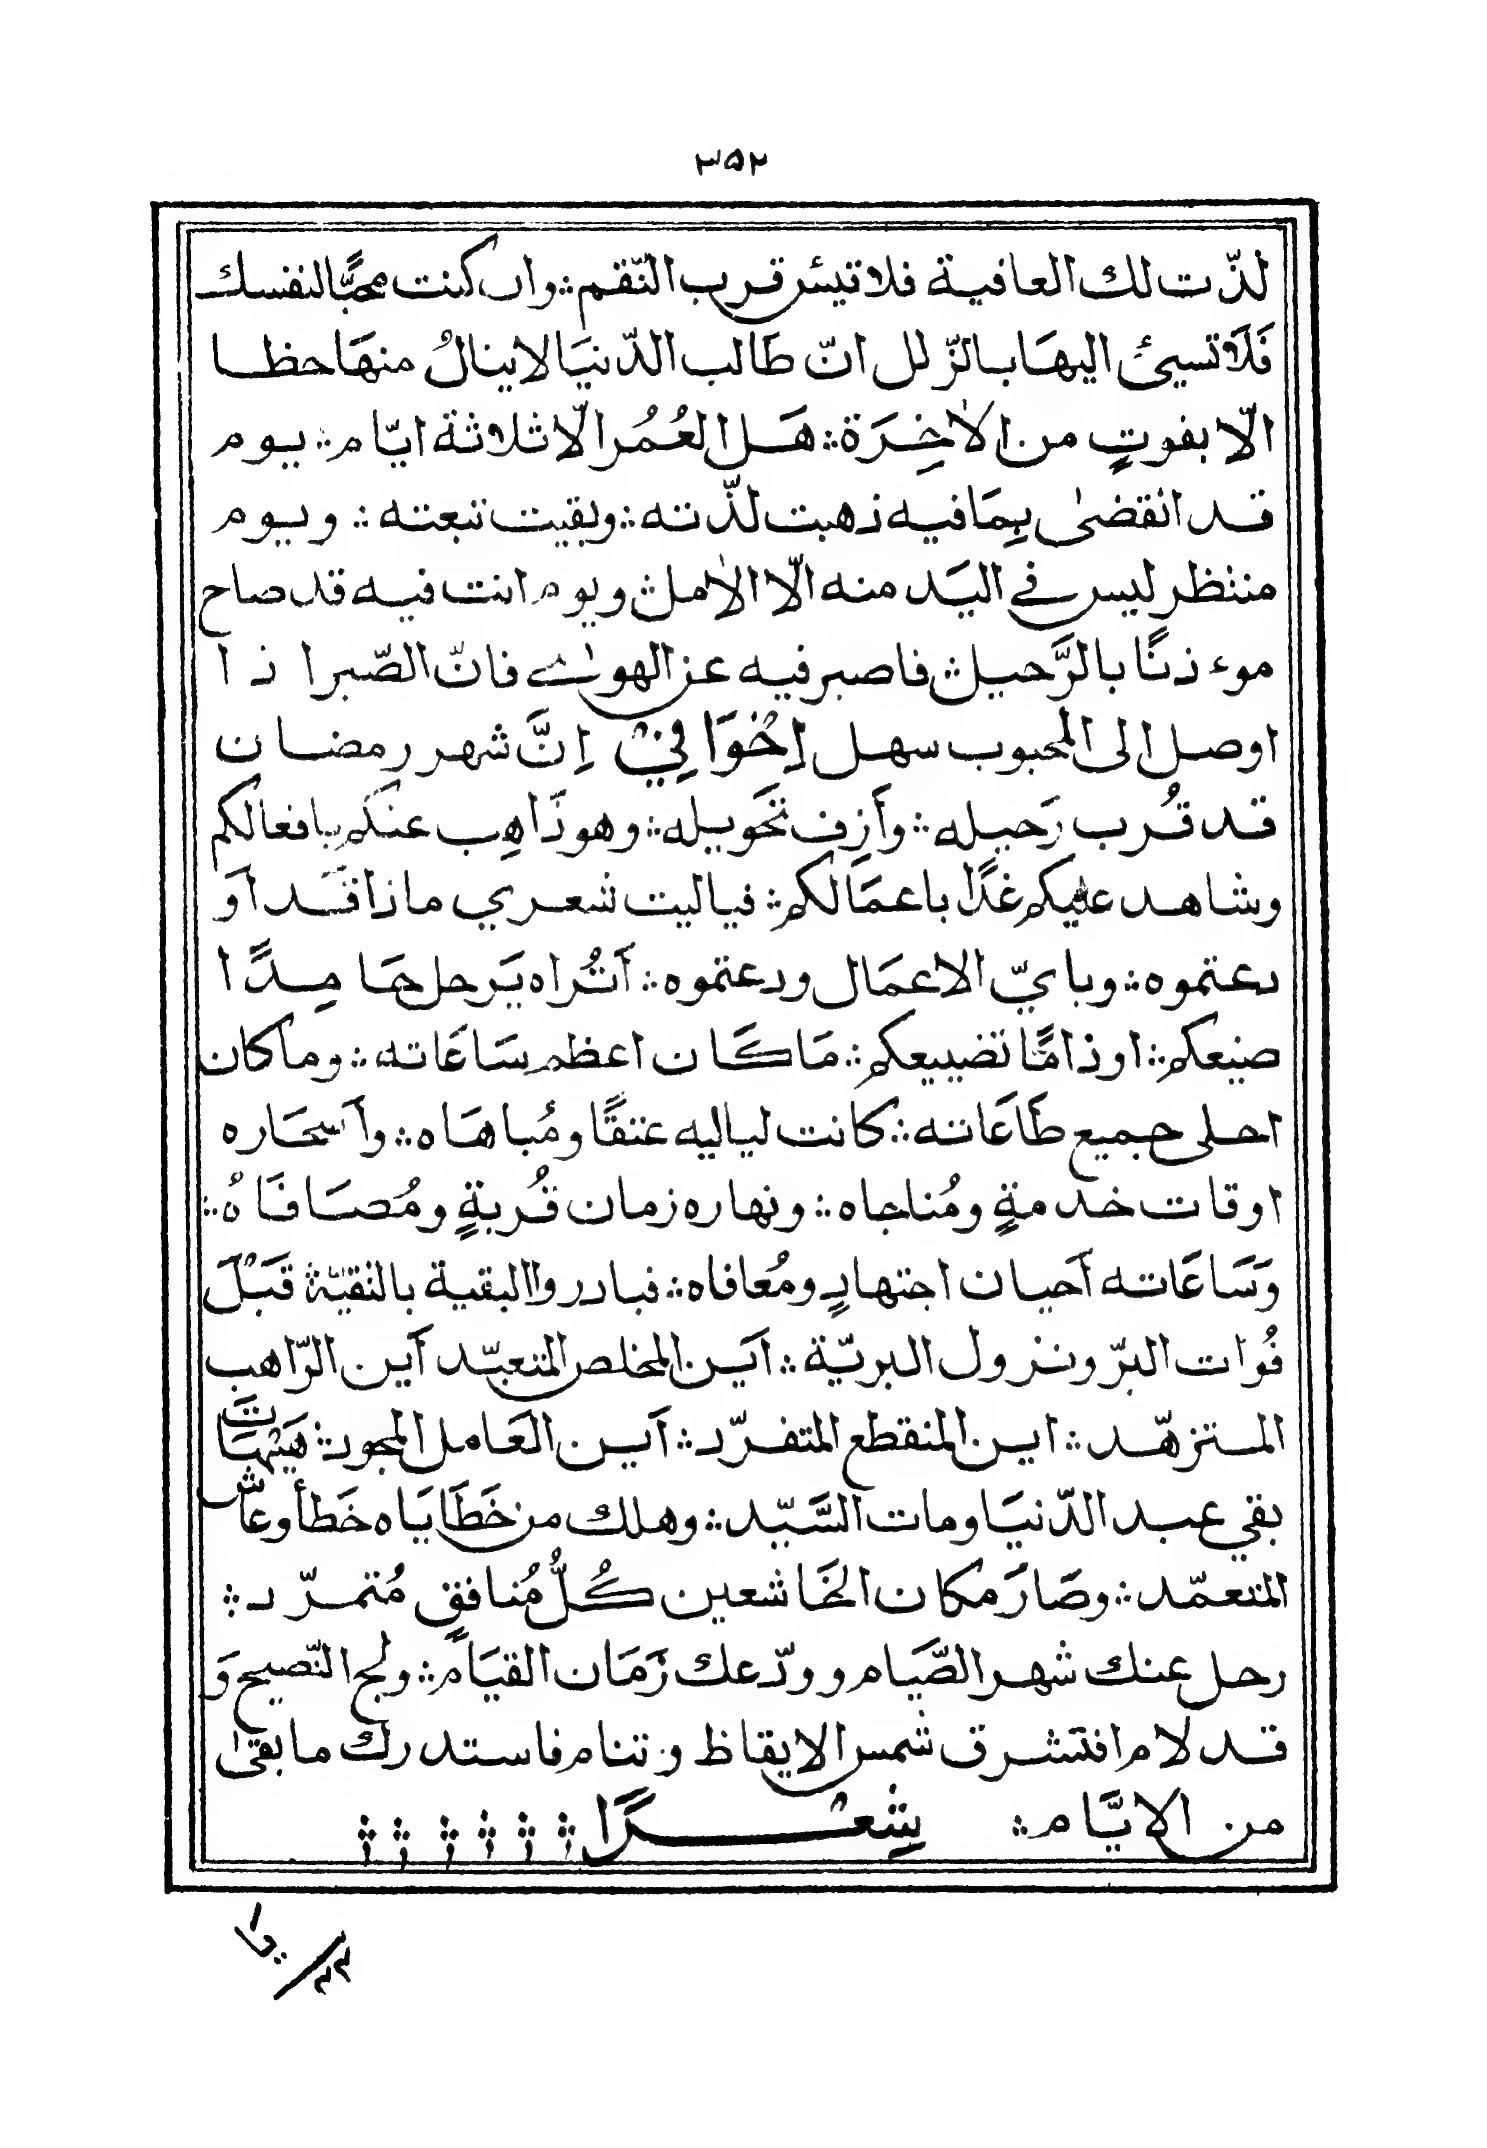 ٣٥٢
لذّت لك العافية فلا تيئس قرب النّقم ؛ وان كنت محبًّا لنفسك
فَلَا تسيئ اليهَا بالزّلل انّ طَالب الدّنيَا لا ينالُ منهَا حظا
الّا بفوتٍ من الاٰخِرَة ؛ هَل العُمُر الّا ثلاثة ايّام ؛ يوم
قد انْقضىٰ بِمَا فيه ذهبت لذّته ؛ وبقيت تبعته ؛ ويوم
منتظر ليس في اليَد منه الّا الاٰمل ؛ ويوم انت فيه قد صاح
موءذنًا بالرَّحيل ؛ فاصبر فيه عن الهوٰے فانّ الصّبر اذا
اوصل الى المحبوب سهل اِخْوَانِيْ اِنَّ شهر رمضان
قد قُرب رَحيله ؛ وأَزِف تَحْويله ؛ وهو ذَاهِب عنكم بافعالكم
وشاهد عليكم غدًا باعمَالكم ؛ فياليت شعري ماذا قَد اَو
دعتموه ؛ وبايّ الاعمَال ودعتموه ؛ أَتُراه يَرحل حَامِدًا
صنيعكم ؛ او ذامًّا تضييعكم ؛ مَا كَان اعظم سَاعَاته ؛ وما كان
احلى جميع طَاعَاته ؛ كانت لياليه عتقًا ومُباهَاه ؛ وأَسحَاره
اوقات خدمةٍ ومُناجاه ؛ ونهاره زمان قُربةٍ ومُصَافَاهُ ؛
وَسَاعَاته أَحيان اجتهادٍ ومُعافاه ؛ فبادروا البقية بالتقيّة قَبْلَ
فُوات البرّ ونزول البريّة ؛ اَين المخلص المتعبّد أَين الرّاهب
المتزهّد ؛ اين المنقطع المتفرّد ؛ اَين العَامل المجود ؛ هَيْهَاتَ
بقي عبد الدّنيَا ومات السَّيّد ؛ وهلك من خَطَايَاه خَطأ وعَاش
المتعمّد ؛ وصَارَ مكان الخَاشعين كُلُّ مُنافقٍ مُتمرّد ؛
رحل عنك شهر الصَّيَام وودّعك زَمَان القيَام ؛ ولج النّصيح وَ
قد لام افتشرق شمس الايقاظ وتنام فاستدرك ما بقىٰ
من الايَّام ؛ شِعْرًا